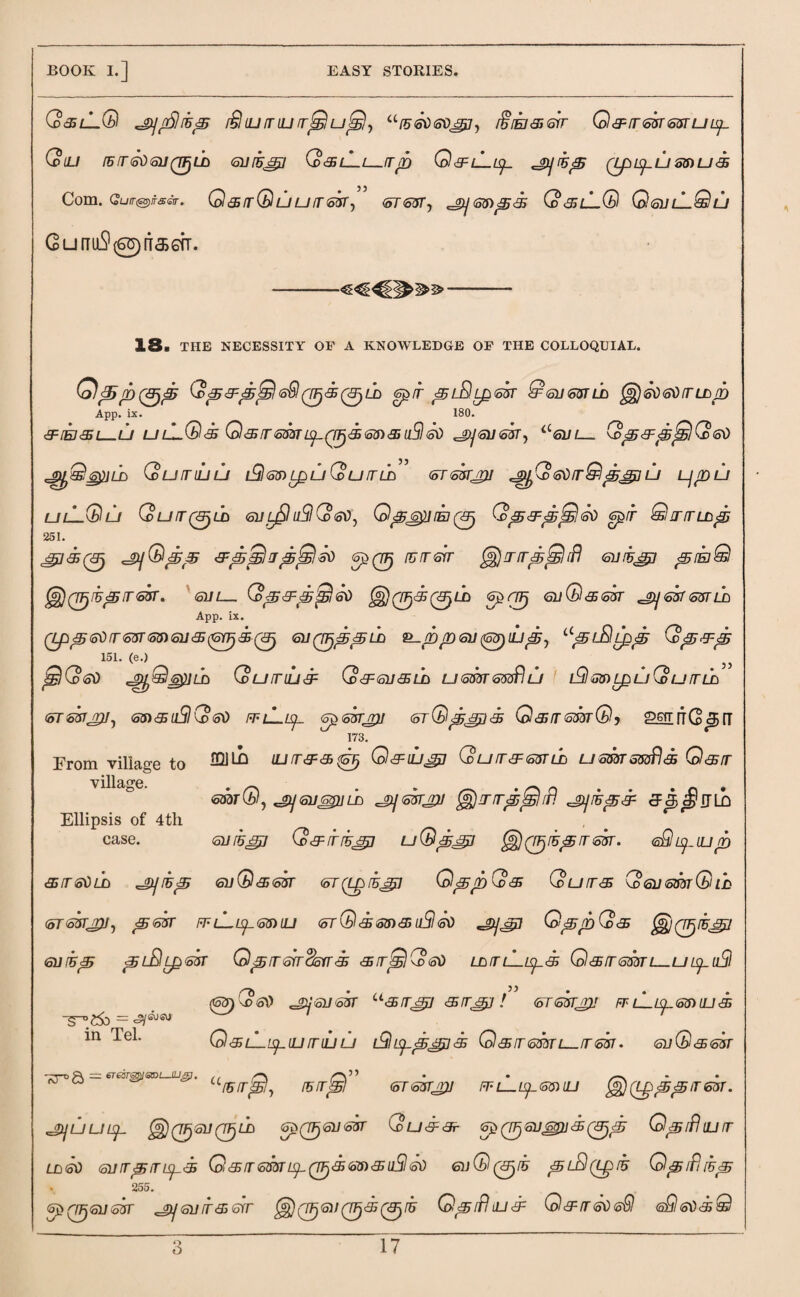 BOOK I.] EASY STORIES.
கேட்டு அறிந்த நியாயாதிபதி, “நல்லது, நீங்கள் சொன்னபடி
யே நால்வரும் வந்து கேட்டாற் செட்டி அந்த முடிப்பைக்
Com. போனார்கள். கொடுப்பான்,” என, அதைக் கேட்டு வெட்கிப்
போயினார்கள்.
18. THE NECESSITY OF A KNOWLEDGE OF THE COLLOQUIAL.
தெற்குத் தேசத்திலிருக்கும் ஓர் தமிழன் சீவனம் இல்லாமற்
App. ix. 180.
சங்கடப் பட்டுக் கொண்டிருக்கையில் அவன், “வட தேசத்திலே
ஆகிலும் போய்ப் பிழைப்போம்” என்று ஆலோசித்துப் புறப்
பட்டுப் போகும் வழியிலே, தெலுங்கு தேசத்தில் ஓர் கிராமத்
251.
துக்கு அடுத்த சத்திரத்தில் ஒரு நாள் இராத்திரி வந்து தங்கி
இருந்தான். வட தேசத்தில் இருக்கும் ஒரு வடுகன் அன்னம்
App. ix.
முதலானவைகளுக்கு வருத்தம் உற்றவனாய், “தமிழ்த் தேச
151. (e.)
த்திலே ஆகிலும் போய்ச் சேவகம் பண்ணிப் பிழைப்போம்”
என்று, கையிலே ஈட்டி ஒன்று எடுத்துக் கொண்டு, ஊர்தோ
173.
From village to village. றும் யாசகஞ் செய்து போசனம் பண்ணிக் கொ
ண்டு, அவனும் அன்று இராத்திரி அந்தச் சத்திரம்
Ellipsis of 4th case. வந்து சேர்ந்து படுத்து இருந்தான். விடியற்
காலம் அந்த வடுகன் எழுந்து தெற்கே போக வேண்டும்
என்று, தன் ஈட்டியை எடுக்கையில் அது தெற்கே இருந்து
வந்த தமிழன் தொள்ளைக் காதிலே மாட்டிக் கொண்டபடியி
కాదు = அல்ல in Tel. னாலே அவன் “காது காது!” என்று ஈட்டியைக்
கெட்டியாய்ப் பிடித்துக் கொண்டான். வடுகன்
నాది = என்னுடையது. “நாதி, நாதி” என்று ஈட்டியை இழுத்தான்.
அப்படி இருவரும் ஒருவன் பேச்சு ஒருவனுக்குத் தெரியா
மல் வாதாடிக் கொண்டிருக்கையில் வடுகுந் தமிழுந் தெரிந்த
255.
ஒருவன் அவர்கள் இருவருக்குந் தெரியச் சொல்லி விலக்கி
3 17